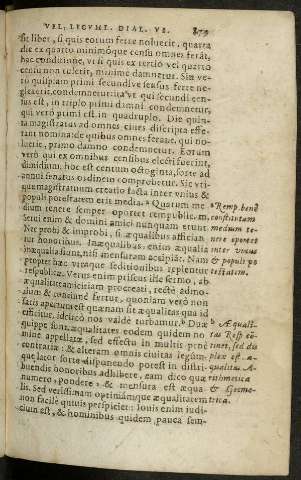 VEL, LEGVM. DIAL. VI. 879
sit liber, si quis eorum ferre noluerit, quarta
die ex quarto minimóque censu omnes ferát,
hac condicione, vt si quis ex tertio vel quarto
censu non tulerit, minime damnetur. Sin ve-
rò quispiam primi secundive sensus ferre ne-
glexerit, condemnetur: ita vt qui secundi cen-
sus est, in triplo primi damni condemnetur,
qui verò primi est in quadruplo. Die quin-
ta magistratus ad omnes ciues discripta esse-
rant nomina: de quibus omnes ferant, qui no-
luerit, primo damno condemnetur. Eorum
verò qui ex omnibus censibus electi fuerint,
dimidium, hoc est centum octoginta, sorte ad
annui senatus ordinem comprobetur. Sic vti-
que magistratuum creatio facta inter vnius &
populi potestatem erit media. Quarum me-
dium tenere semper oportet rempublicam.
Serui enim & domini amici nunquam erunt
Nec probi & improbi, si æqualibus affician-
tur honoribus. Inæqualibus enim æqualia
inæqualia sunt, nisi mensuram accipiãt. Nam
propter hæc vtraque seditionibus replentur
respublicæ. Verus enim priscus ille sermo, ab
æqualitate amicitiam procreari, rectè admo-
dum & concinnè fertur, quoniam verò non
satis apertum est quænam sit æqualitas quæ id
efficiat, idcirco nos valde turbamur. Duæ
quippe sunt æqualitates eodem quidem no
mine appellatæ, sed effectu in multis penè
contrariæ: & alteram omnis ciuitas legúm-
que lator sorte disponendo potest in distri-
buendis honoribus adhibere, eam dico quæ
numero, pondere & mensura est æqua-
lis. Sed verissimam optimámque æqualitatem
non facilè quiuis perspiciet: Iouis enim iudi-
cium est, & hominibus quidem pauca sem-
Remp. bene
constantam
medium te-
nere oportet
inter vnius
& populi po
testatem.
Æquali-
tas Resp. cō
tinet, sed du
plex est. æ-
qualitas A-
rithmetica
& Geome-
trica.